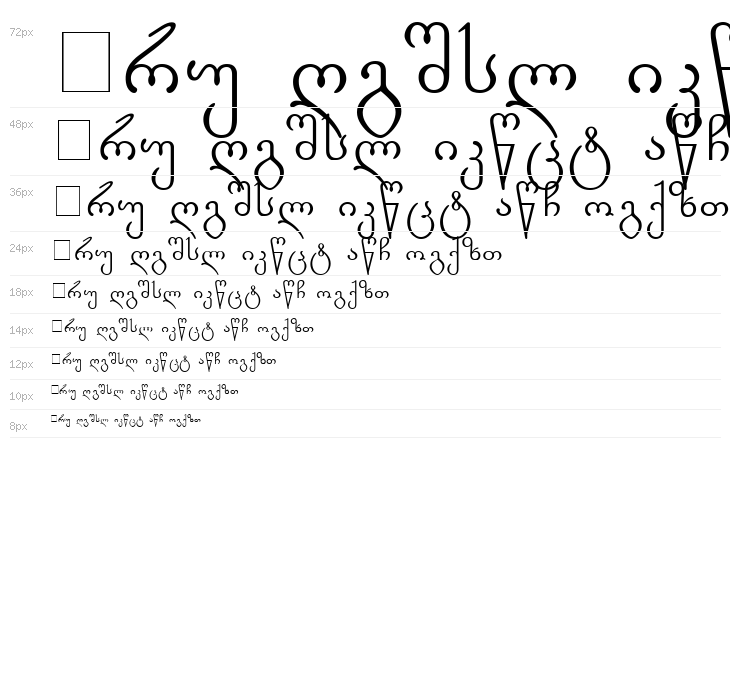 72px რუ ღგშსლ იკ
48px რუ ღგშსლ იკწცტ აწჩ
36px რუ ღგშსლ იკწცტ აწჩ ოგქზთ
24px რუ ღგშსლ იკწცტ აწჩ ოგქზთ
18px რუ ღგშსლ იკწცტ აწჩ ოგქზთ
14px რუ ღგშსლ იკწცტ აწჩ ოგქზთ
12px რუ ღგშსლ იკწცტ აწჩ ოგქზთ
10px რუ ღგშსლ იკწცტ აწჩ ოგქზთ
8px რუ ღგშსლ იკწცტ აწჩ ოგქზთ